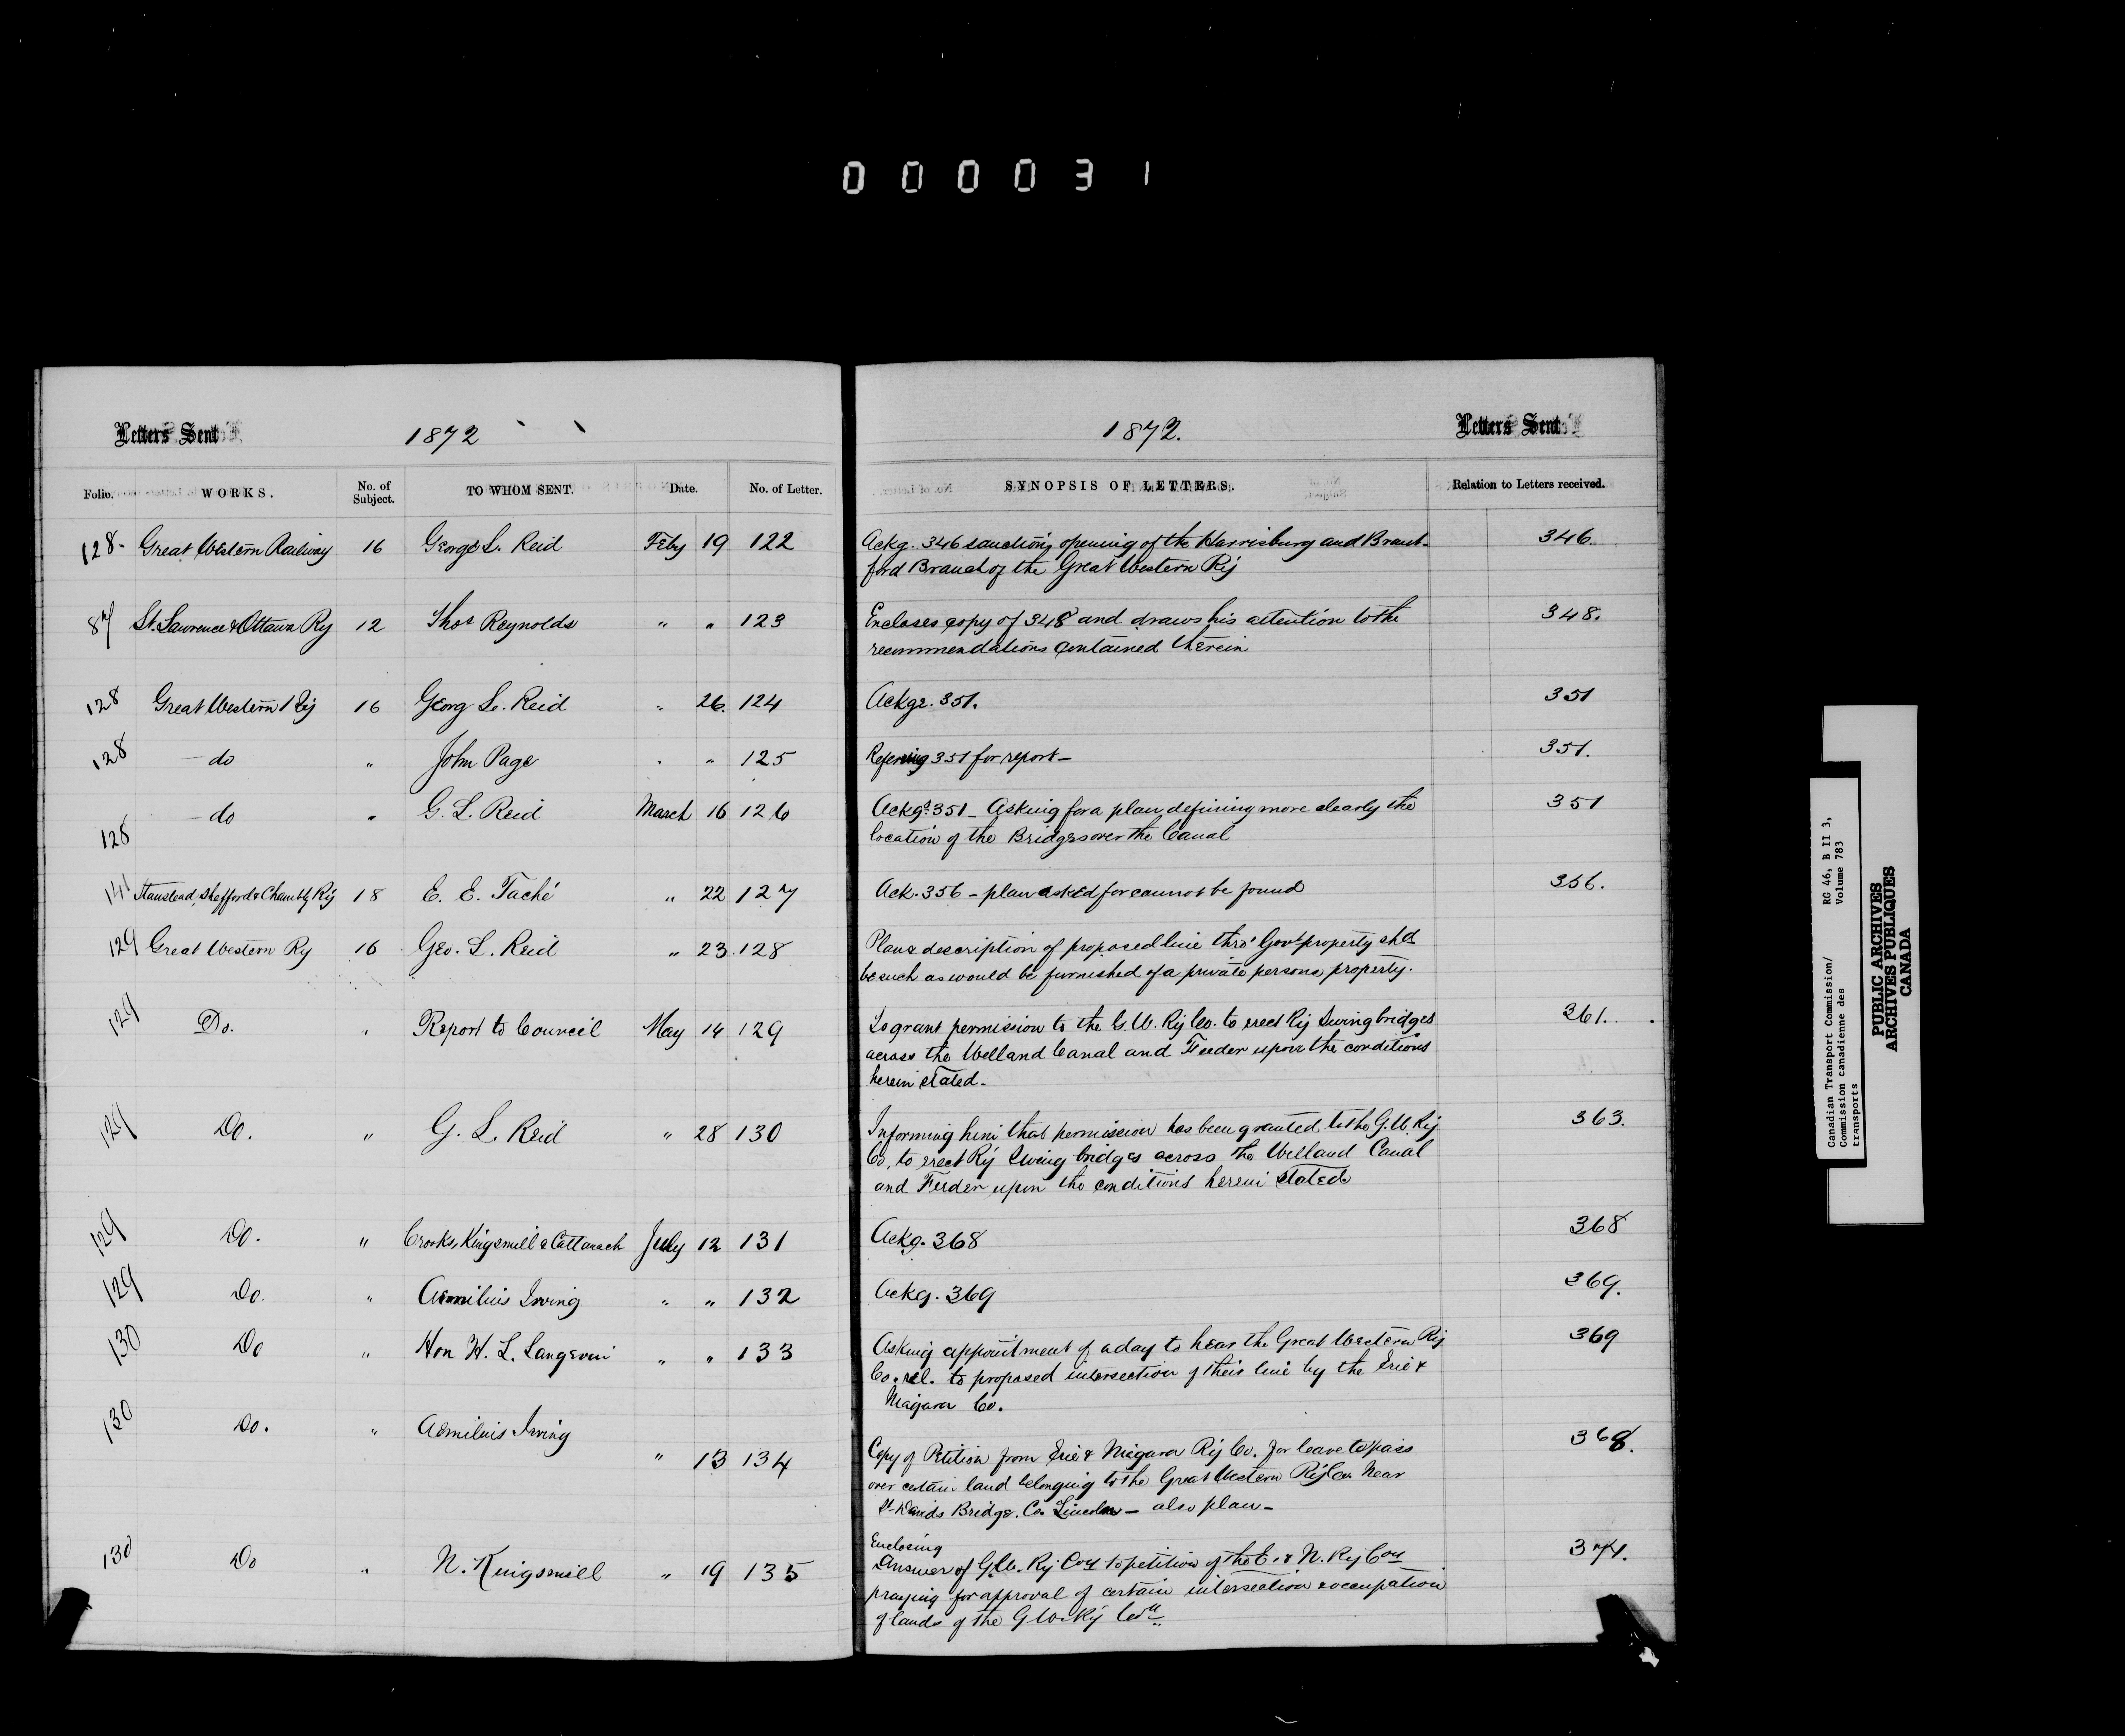 000031
Letters Sent 1872
Folio. WORKS. No. of Subject. TO WHOM SENT. Date. No. of Letter.
1872. Letters Sent
SYNOPSIS OF LETTERS. Relation to Letters received.
128. Great Western Railway 16 George L. Reid Feby 19 122 Ackg. 346 sanctiong opening of the Harrisburg and Brant- 346.
ford Branch of the Great Western Ry
87 St. Lawrence & Ottawa Ry 12 Thos Reynolds " " 123 Encloses copy of 348 and draws his attention to the 348.
recommendations contained therein
128 Great Western Ry 16 Georg L. Reid " 26. 124 Ackgs. 351. 351
128 do " John Page " " 125 Referring 351 for report - 351.
128 do " G. L. Reid March 16 126 Ackgs. 351 - Asking for a plan defining more clearly the 351
location of the Bridges over the Canal
141 Stanstead, Shefford & Chambly Ry 18 E. E. Taché " 22 127 Ack. 356 - plan asked for cannot be found 356.
129 Great Western Ry 16 Geo. L. Reid " 23. 128 Plan & description of proposed line thro' Govt property shd
be such as would be furnished of a private persons property.
129 Do. " Report to Council May 14 129 To grant permission to the G. W. Ry Co. to erect Ry Swing bridges 361.
across the Welland Canal and Feeder upon the conditions
herein stated.
129 Do. " G. L. Reid " 28 130 Informing him that permission has been granted to the G. W. Ry 363.
Co. to erect Ry Swing bridges across the Welland Canal
and Feeder upon the conditions herein stated
129 Do. " Crooks, Kingsmill & Cattanach July 12 131 Ackg. 368 368
129 Do. " Aemilius Irving " " 132 Ackg. 369 369.
130 Do " Hon H. L. Langevin " " 133 Asking appointment of a day to hear the Great Western Ry 369
Co. rel. to proposed intersection of their line by the Erie &
Niagara Co.
130 Do. " Aemilius Irving " 13 134 Copy of Petition from Erie & Niagara Ry Co. for leave to pass 368.
over certain land belonging to the Great Western Ry Co. near
St. Davids Bridge. Co. Lincoln - also plan -
130 Do " N. Kingsmill " 19 135 Enclosing 374.
Answer of G. W. Ry Coy to petition of the E. & N. Ry Coy
praying for approval of certain intersection & occupation
of lands of the G W. Ry
Canadian Transport Commission/ RG 46, B II 3,
Commission canadienne des Volume 783
transports
PUBLIC ARCHIVES
ARCHIVES PUBLIQUES
CANADA